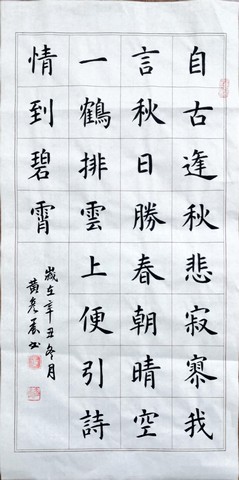 自古逢秋悲寂寥我
言秋日勝春朝晴空
一鶴排雲上便引詩
情到碧霄
歲在辛丑冬月
黃